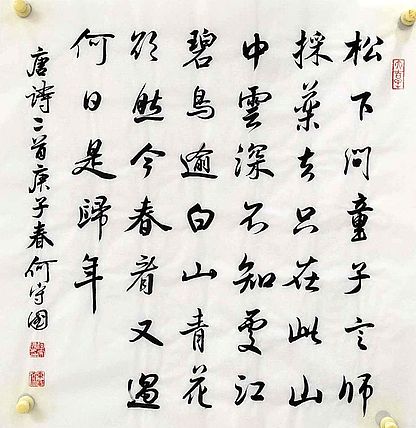 松下问童子言师
採藥去只在此山
中雲深不知處江
碧鳥逾白山青花
欲然今春看又過
何日是歸年
唐诗二首庚子春何守國